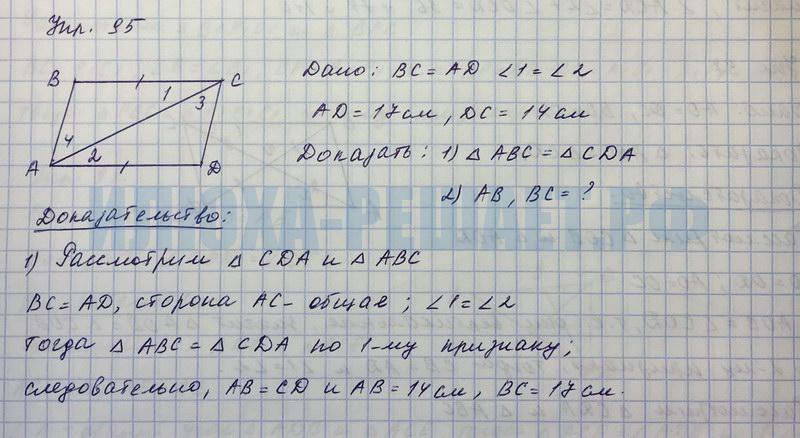 Упр. 95
B C
1 3
4 2
A D
Дано: BC = AD ∠1 = ∠2
AD = 17 см, DC = 14 см
Доказать: 1) △ ABC = △ CDA
2) AB, BC = ?
ИЛЮХА-РЕШАЕТ.РФ
Доказательство:
1) Рассмотрим △ CDA и △ ABC
BC = AD, сторона AC - общая; ∠1 = ∠2
тогда △ ABC = △ CDA по 1-му признаку;
следовательно, AB = CD и AB = 14 см, BC = 17 см.